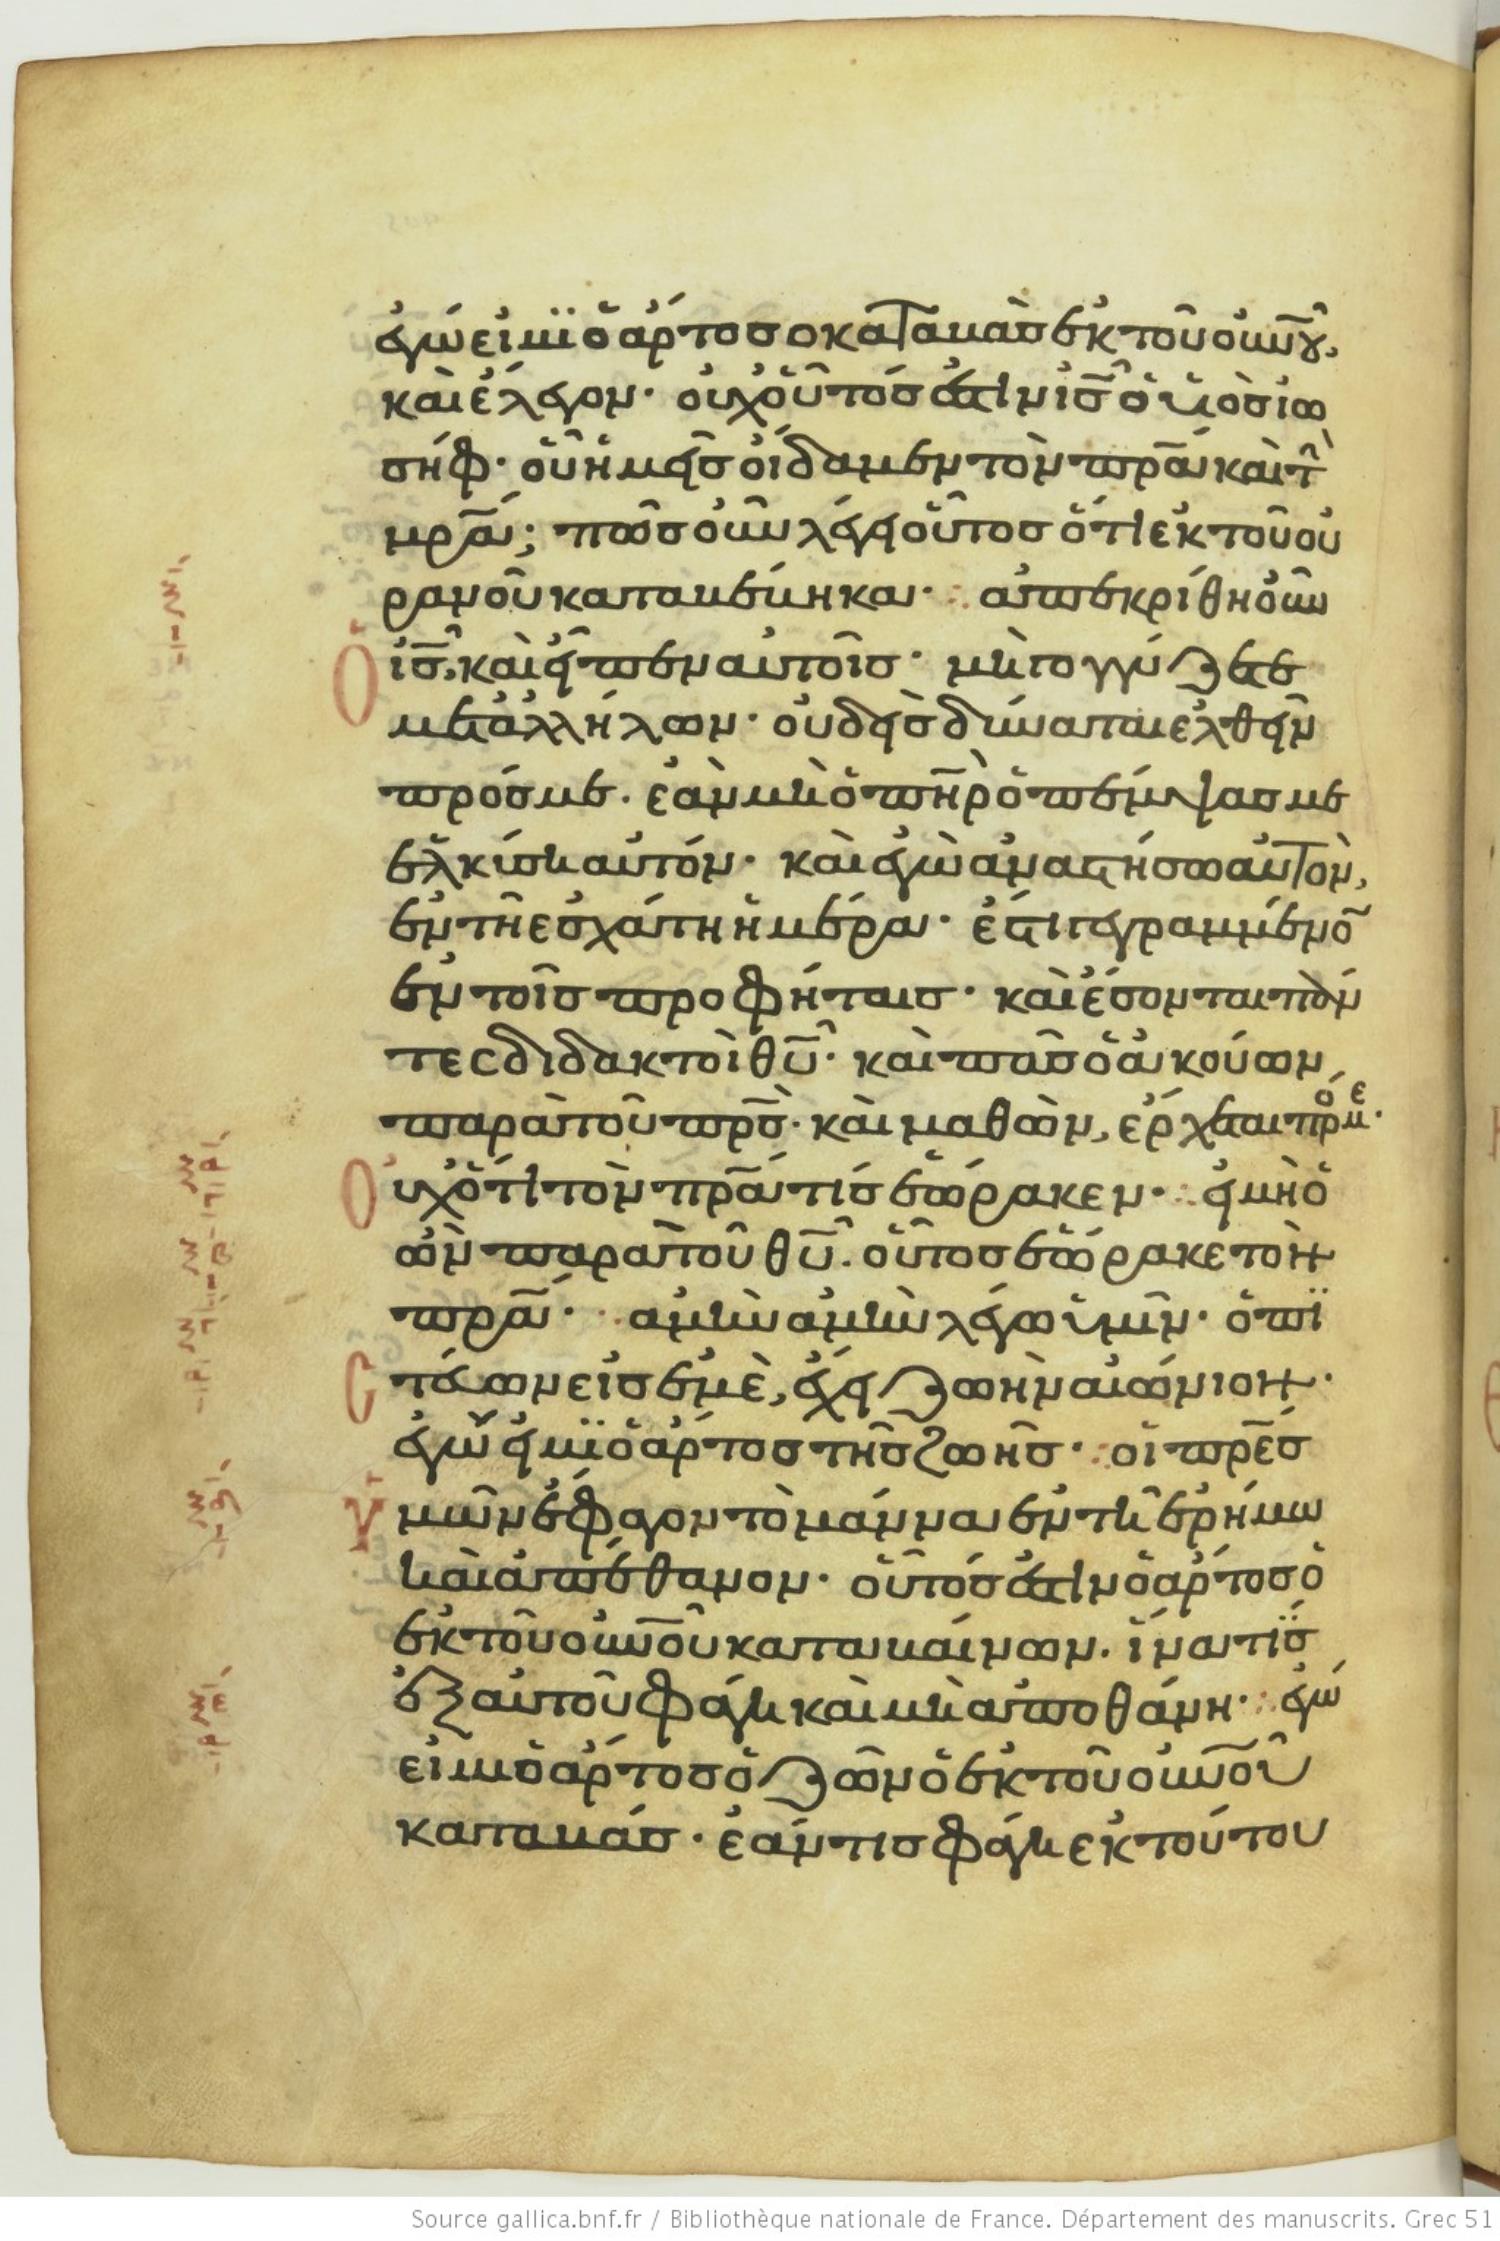 ἐγώ εἰμϊ ὁ ἄρτος ο καταβὰς ἐκ τοῦ οὐν̅ου,
καὶ ἔλεγον· οὐχ οὗτός ἐστιν ι̅ς̅ ὁ υἱὸς ἰω
σήφ· οὗ ἡμεῖς οἴδαμεν τὸν π̅ρ̅α̅ καὶ τὴν
μ̅ρ̅α̅; πῶς οὖν λέγει οὗτος ὅτι ἐκ τοῦ οὐ
ρανοῦ καταβέβηκα· ἀπεκρίθη οὖν
ὁ ι̅ς̅, καὶ εἶπεν αὐτοῖς· μὴ γογγύζετε
μετ' ἀλλήλων· οὐδεὶς δύναται ἐλθεῖν
πρός με. ἐὰν μὴ ὁ π̅η̅ρ̅ ὁ πέμψας με
ἑλκύσῃ αὐτόν· καὶ ἐγὼ ἀναστήσω αὐτὸν,
ἐν τῆ ἐσχάτη ἡμέρα· ἔστι γεγραμμένο̅
ἐν τοῖς προφήταις· καὶ ἔσονται πάν
τες διδακτοὶ θ̅υ̅· καὶ πᾶς ὁ ἀκούων
παρὰ τοῦ π̅ρ̅ς̅· καὶ μαθὼν, ἔρχεται πρόμε·
Οὐχ ὅτι τὸν π̅ρ̅α̅ τίς ἑώρακεν· εἰ μὴ ὁ
ὢν παρὰ τοῦ θ̅υ̅. οὗτος ἑώρακε τὸν
π̅ρ̅α̅· ἀμὴν ἀμὴν λέγω ὑμῖν· ὁ πϊ
στεύων εἰς ἐμὲ, ἔχει ζωὴν αἰώνιον·
ἐγώ εἰμϊ ὁ ἄρτος τῆς ζωῆς· οἱ π̅ρ̅ε̅ς̅
ὑμῶν ἔφαγον τὸ μάννα ἐν τῆ ἐρήμω
καὶ ἀπέθανον· οὗτός ἐστιν ὁ ἄρτος ὁ
ἐκ τοῦ οὐν̅οῦ καταβαίνων. ἵνα τίς
ἐξ αὐτοῦ φάγη καὶ μὴ ἀποθάνη· ἐγώ
εἰμι ὁ ἄρτος ὁ ζῶν ὁ ἐκ τοῦ οὐν̅οῦ
καταβάς· ἐάν τις φάγη ἐκ τούτου
Source gallica.bnf.fr / Bibliothèque nationale de France. Département des manuscrits. Grec 51